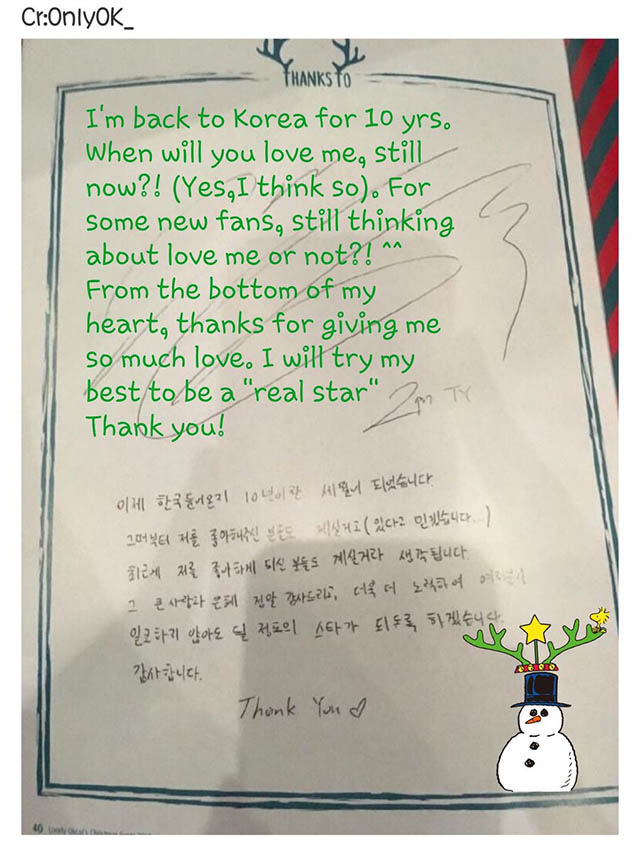 Cr:OnlyOK_
THANKS TO
I'm back to Korea for 10 yrs.
When will you love me, still
now?! (Yes,I think so). For
some new fans, still thinking
about love me or not?! ^^
From the bottom of my
heart, thanks for giving me
so much love. I will try my
best to be a "real star"
Thank you!
2pm TY
이제 한국들어온지 10년이란 세월이 되었습니다.
그때부터 저를 좋아해주신 분들도 계실거고(있다고 믿겠습니다...)
최근에 저를 좋아하게 되신 분들도 계실거라 생각됩니다.
그 큰 사랑과 은혜 정말 감사드리고, 더욱 더 노력하여 여러분이
일코하기 않아도 될 정도의 스타가 되도록 하겠습니다.
감사합니다.
Thank You ♡
40